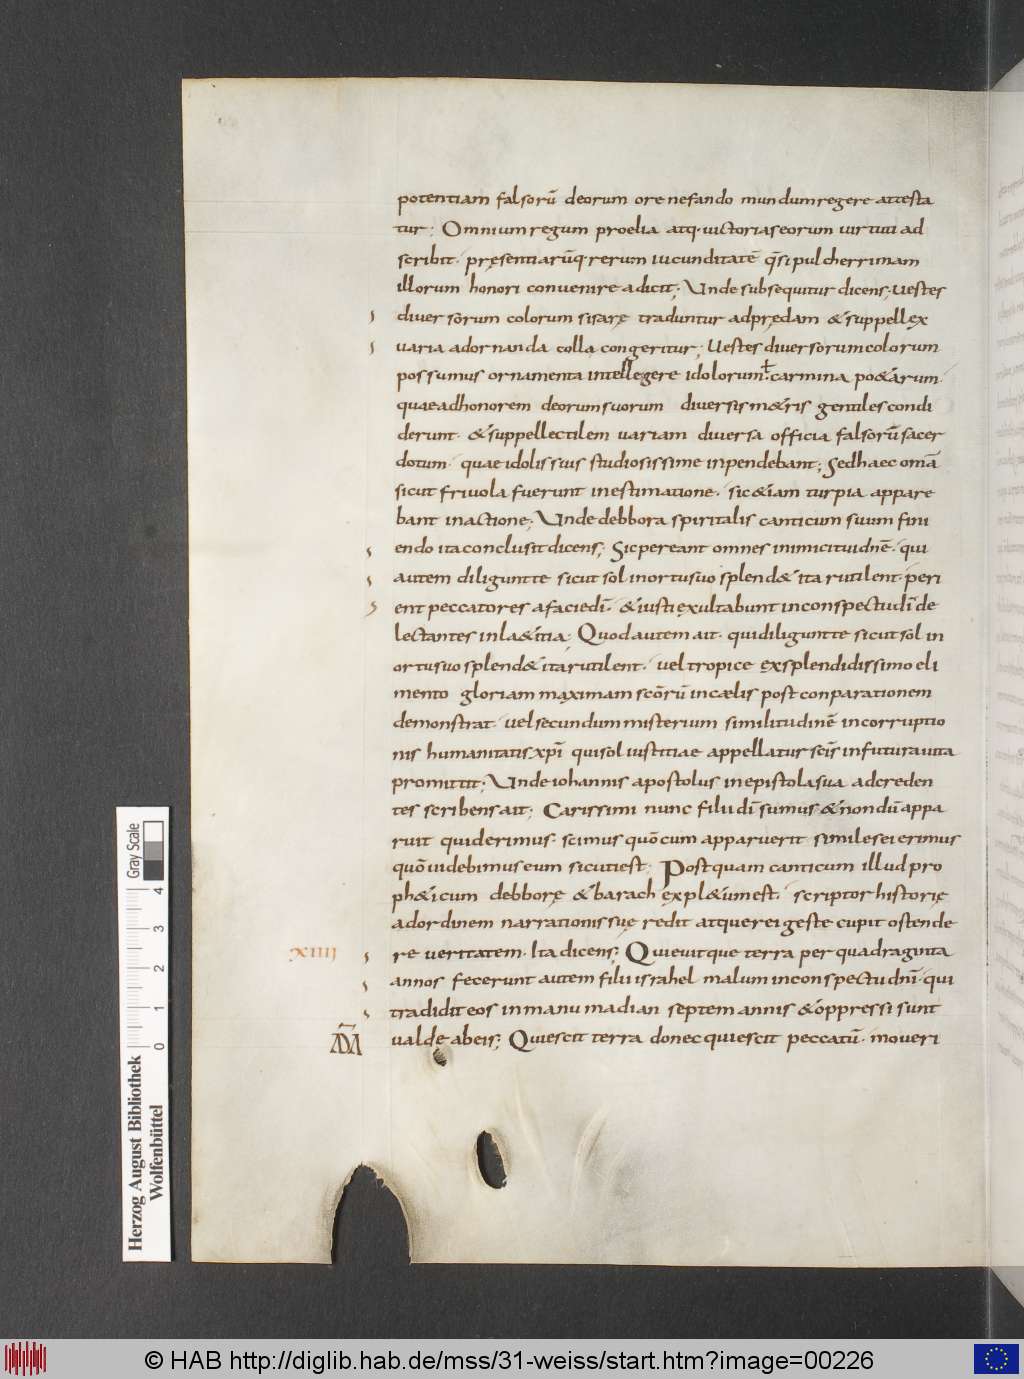 potentiam falsorū deorum ore nefando mundum regere attesta
tur; Omnium regum proelia atq· uictorias eorum uirtuti ad
scribit· pręsentiarūq· rerum iucunditatē q̄si pulcherrimam
illorum honori conuenire adicit; Unde subsequitur dicens; Uestes
diuersorum colorum sisarę traduntur ad prędam & suppellex
uaria adornanda colla congeritur; Uestes diuersorum colorum
possumus ornamenta intellegere idolorum· ł carmina po&arum·
quae ad honorem deorum suorum diuersis m&ris gentiles condi
derunt· & suppellectilem uariam diuersa officia falsorū sacer
dotum· quae idolis suis studiosissime inpendebant; Sed haec omā
sicut friuola fuerunt in estimatione· sic &iam turpia appare
bant in actione; Unde debbora spiritalis canticum suum fini
endo ita conclusit dicens; Sic pereant omnes inimici tui dnē· qui
autem diligunt te sicut sol in ortu suo splend& ita rutilent· peri
ent peccatores a facie dī· & iusti exultabunt in conspectu dī de
lectantes in la&itia; Quod autem ait· qui diligunt te sicut sol in
ortu suo splend& ita rutilent· uel tropice ex splendidissimo eli
mento gloriam maximam scōrū in cælis post conparationem
demonstrat· uel secundum misterium similitudinē incorruptio
nis humanitatis xpī qui sol iustitiae appellatur scīs in futura uita
promittit; Unde iohannis apostolus in epistola sua ad creden
tes scribens ait; Carissimi nunc filii dī sumus & nondū appa
ruit quid erimus· scimus quō cum apparuerit similes ei erimus
quō uidebimus eum sicuti est; Postquam canticum illud pro
ph&icum debborę & barach expl&um est· scriptor historię
ad ordinem narrationis suę redit atque rei gestę cupit ostende
xiiii re ueritatem· Ita dicens; Quieuitque terra per quadraginta
annos fecerunt autem filii israhel malum in conspectu dnī· qui
tradidit eos in manu madian septem annis & oppressi sunt
ualde ab eis; Quiescit terra donec quiescit peccatū· moueri
Herzog August Bibliothek
Wolfenbüttel
0 1 2 3 4
Gray Scale
© HAB http://diglib.hab.de/mss/31-weiss/start.htm?image=00226